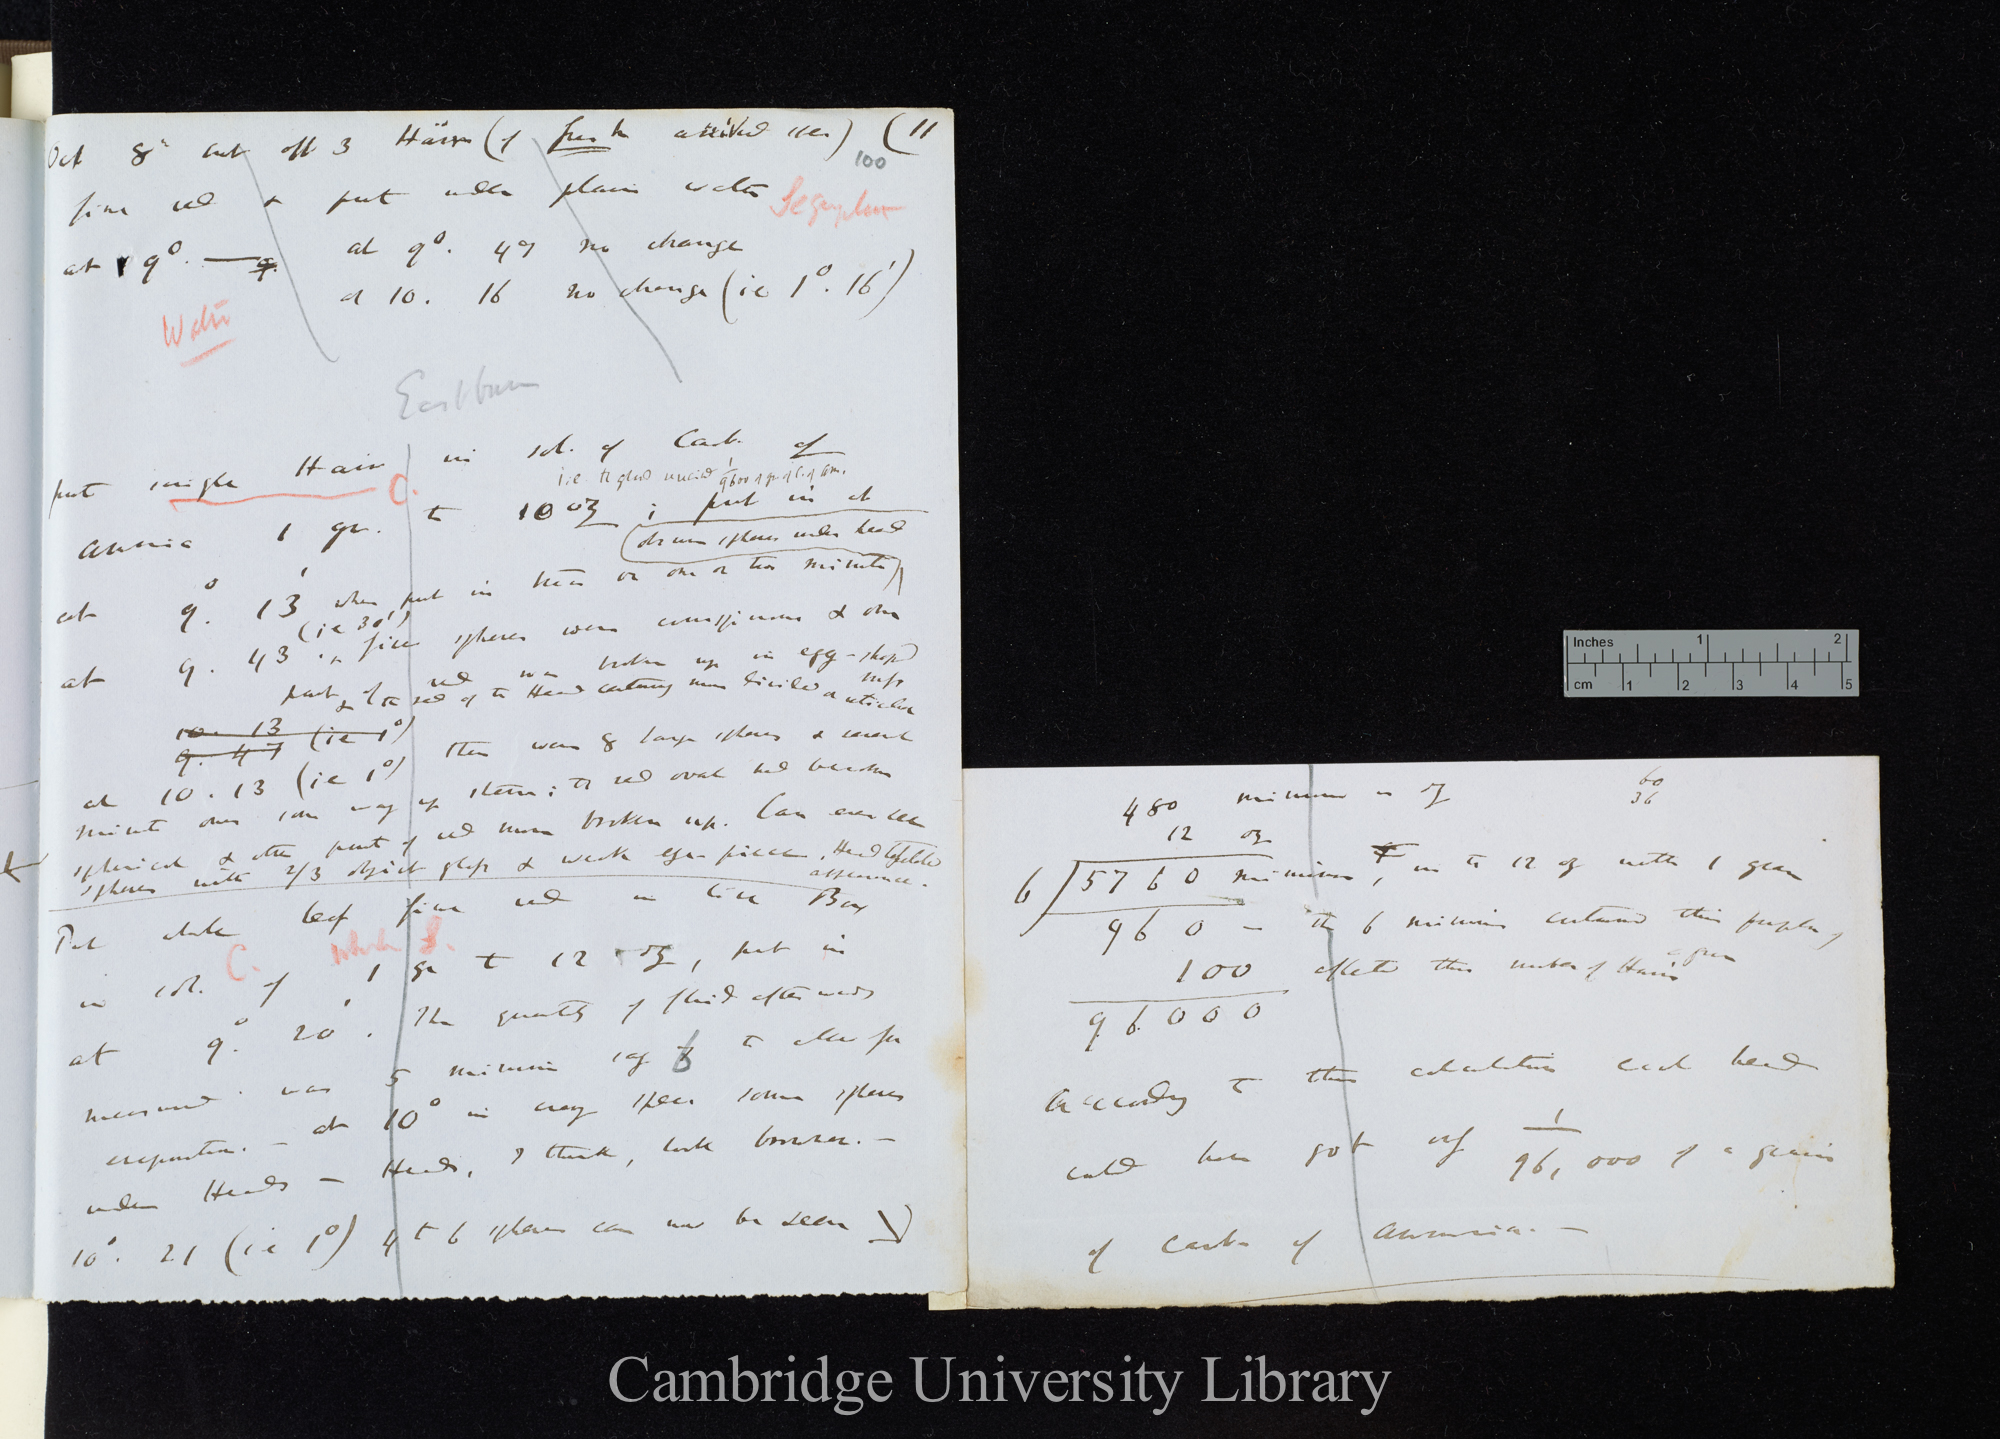 Oct 8th cut off 3 Hairs (of fresh arrived ones) (11
100
fine red & put under plain water
Segregation
at 9°. — at 9°. 49 no change
at 10. 16 no change (ie 1°. 16')
Water
Eastbourne
put single Hair in sol. of Carb. of
C.
i.e. the gland received 1/9600 of gr. of C. of Am.
Ammonia 1 gr. to 10 oz ; put in at
observe spheres under head
at 9°. 13' when put in there or one or two minute)
(ie 30')
at 9. 43 in five spheres were conspicuous & one
part of red was broken up in egg-shaped
& the red of the Head certainly more divided
10. 13
9. 47 (ie 1°)
at 10. 13 (ie 1°) there were 8 large spheres & several
minute ones some way up stem; the red oval had become
spherical & other part of red more broken up. Can even see
spheres with 2/3 object glass & weak eye-piece. Head
appearance.
Put whole leaf fine red in live Box
C. whole L.
in sol. of 1 gr to 12 oz, put in
at 9°. 20'. The quantity of fluid afterwards
measured was 5 minims say 6 to allow for
evaporation. — at 10° in every stem some spheres
under Heads — Heads, I think, look browner. —
10°. 21 (ie 1°) 4 to 6 spheres can now be seen
480 minims in oz
60
36
12 oz
6 5760 minims, in the 12 oz with 1 grain
960 — the 6 minims contained this proportion of
a grain
100 affected this number of Hairs
96000
According to this calculation each head
could have got only 1/96,000 of a grain
of Carb. of Ammonia. —
Inches 1 2
cm 1 2 3 4 5
Cambridge University Library